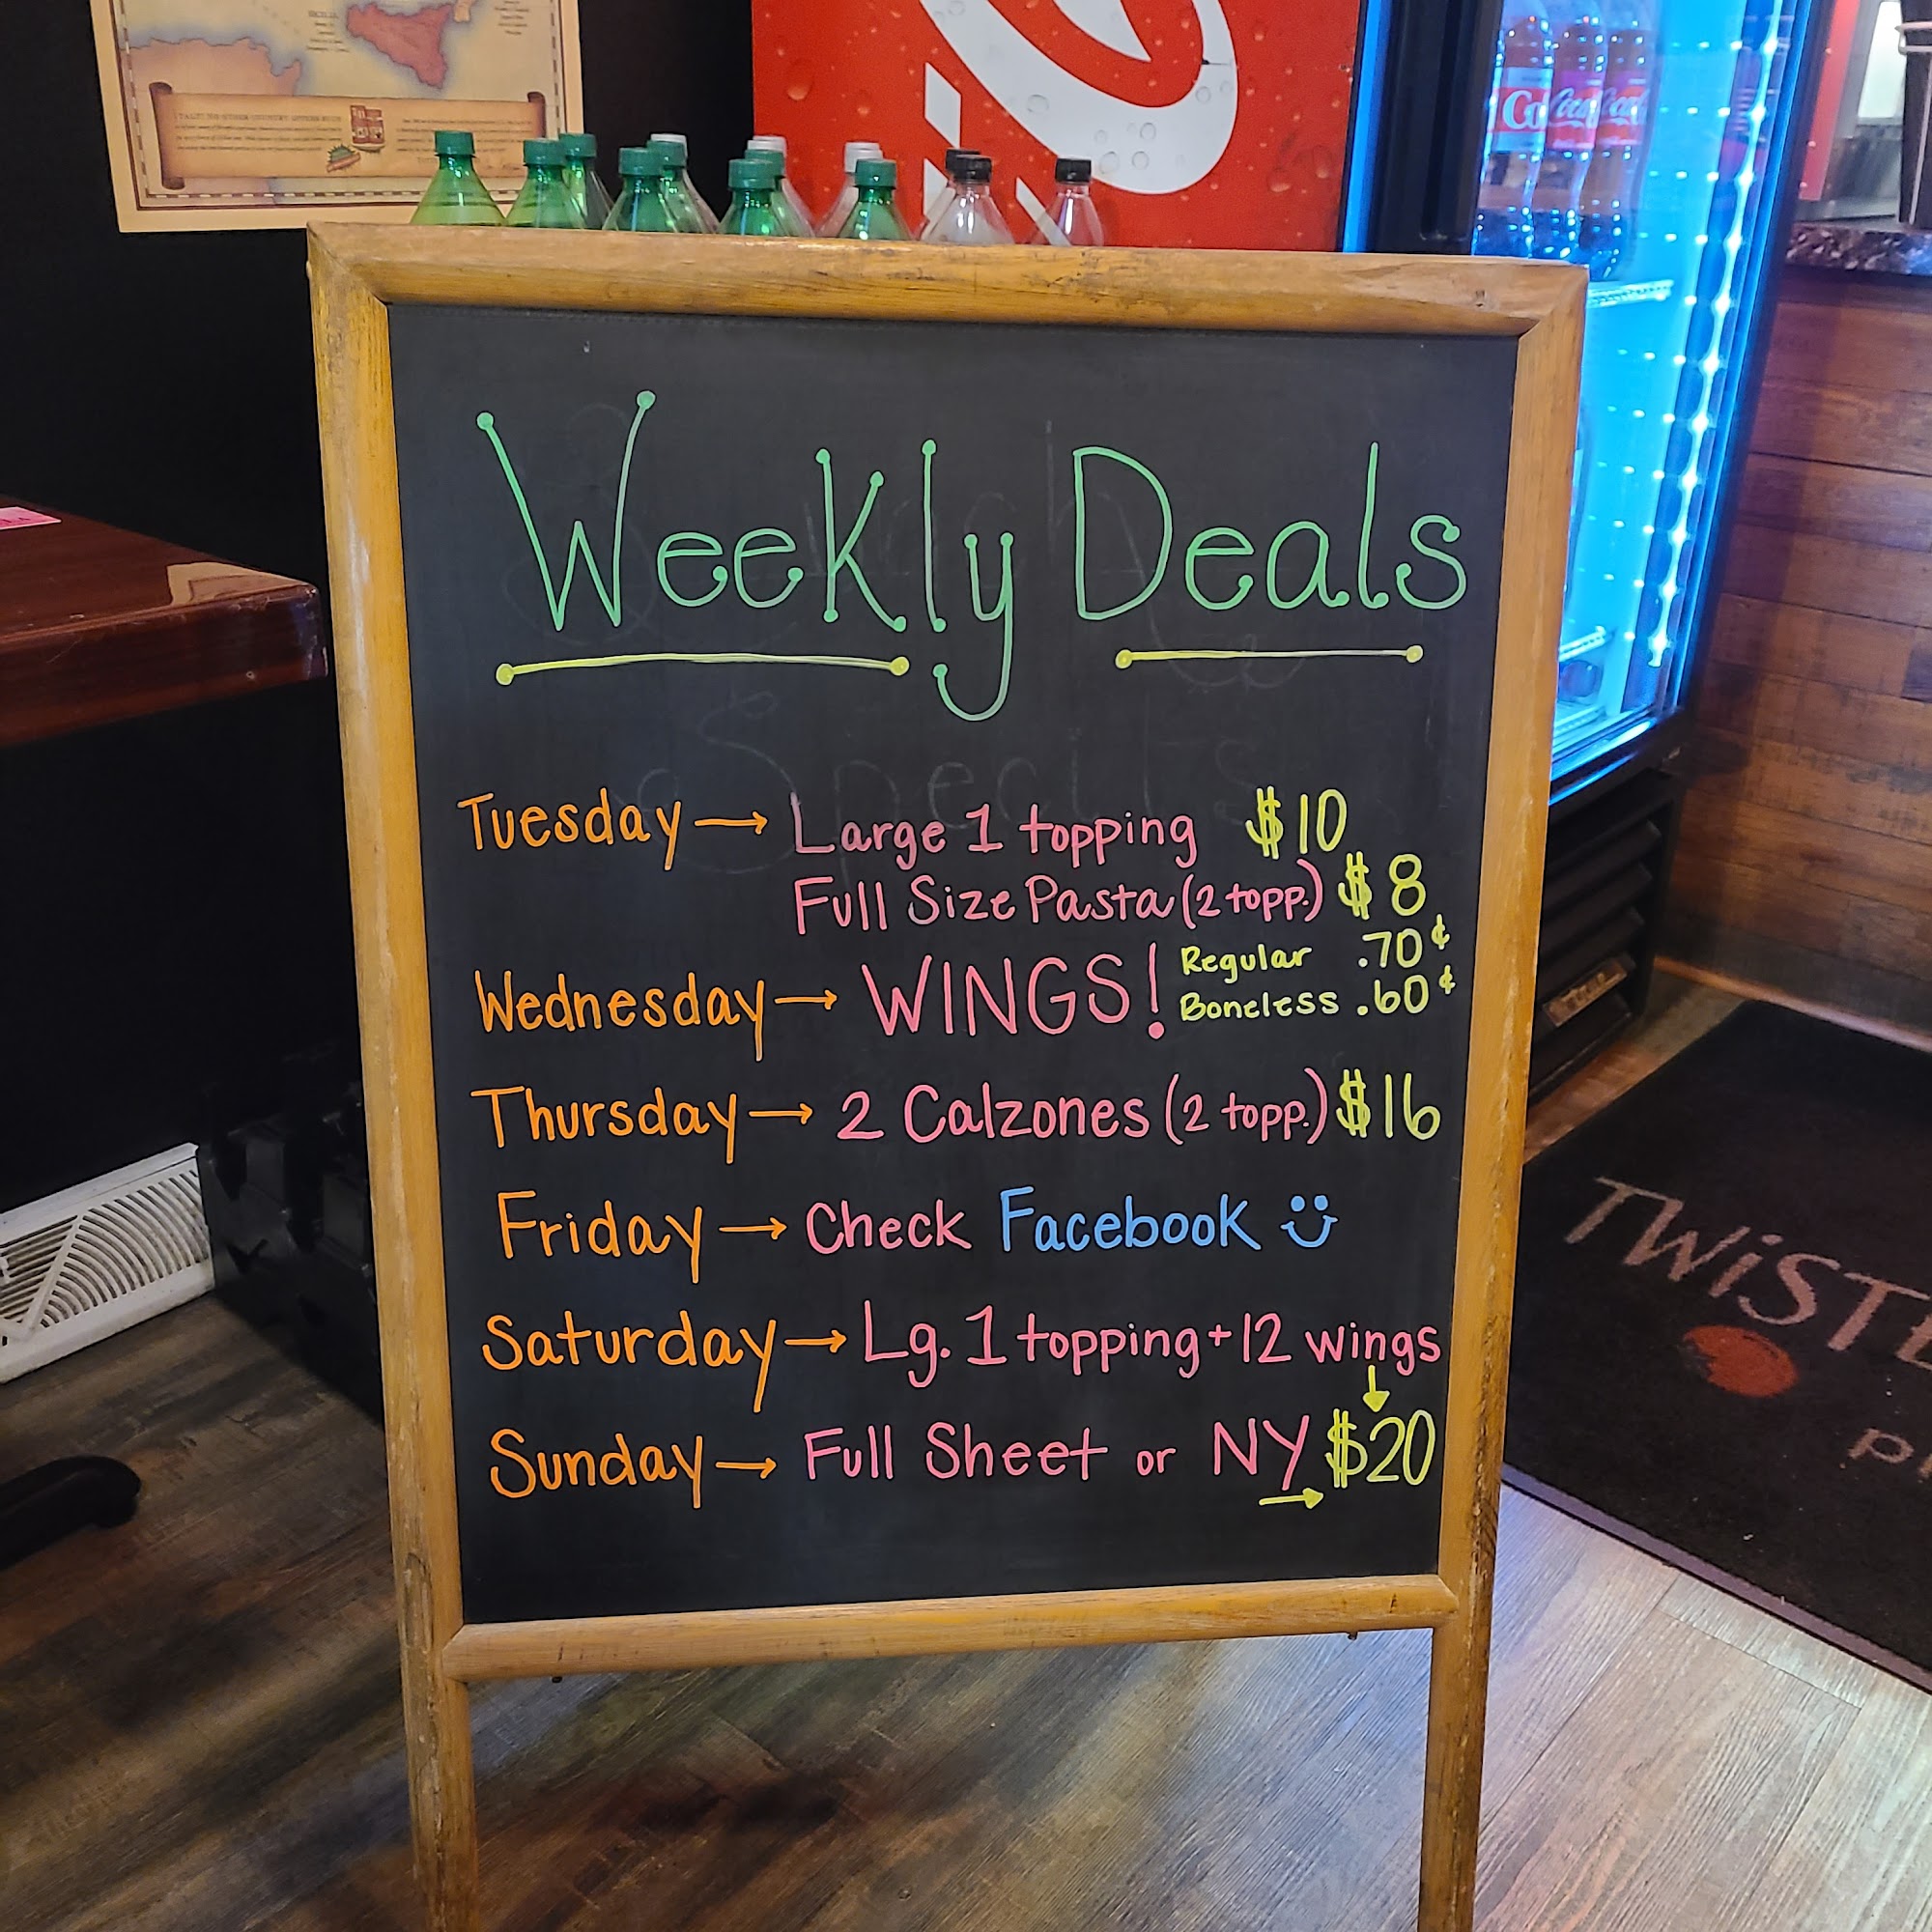 Weekly Deals
Tuesday → Large 1 topping $10
Full Size Pasta (2 topp.) $8
Wednesday → WINGS! Regular .70¢
Boneless .60¢
Thursday → 2 Calzones (2 topp.) $16
Friday → Check Facebook
Saturday → Lg. 1 topping + 12 wings
Sunday → Full Sheet or NY $20
TWiSTE